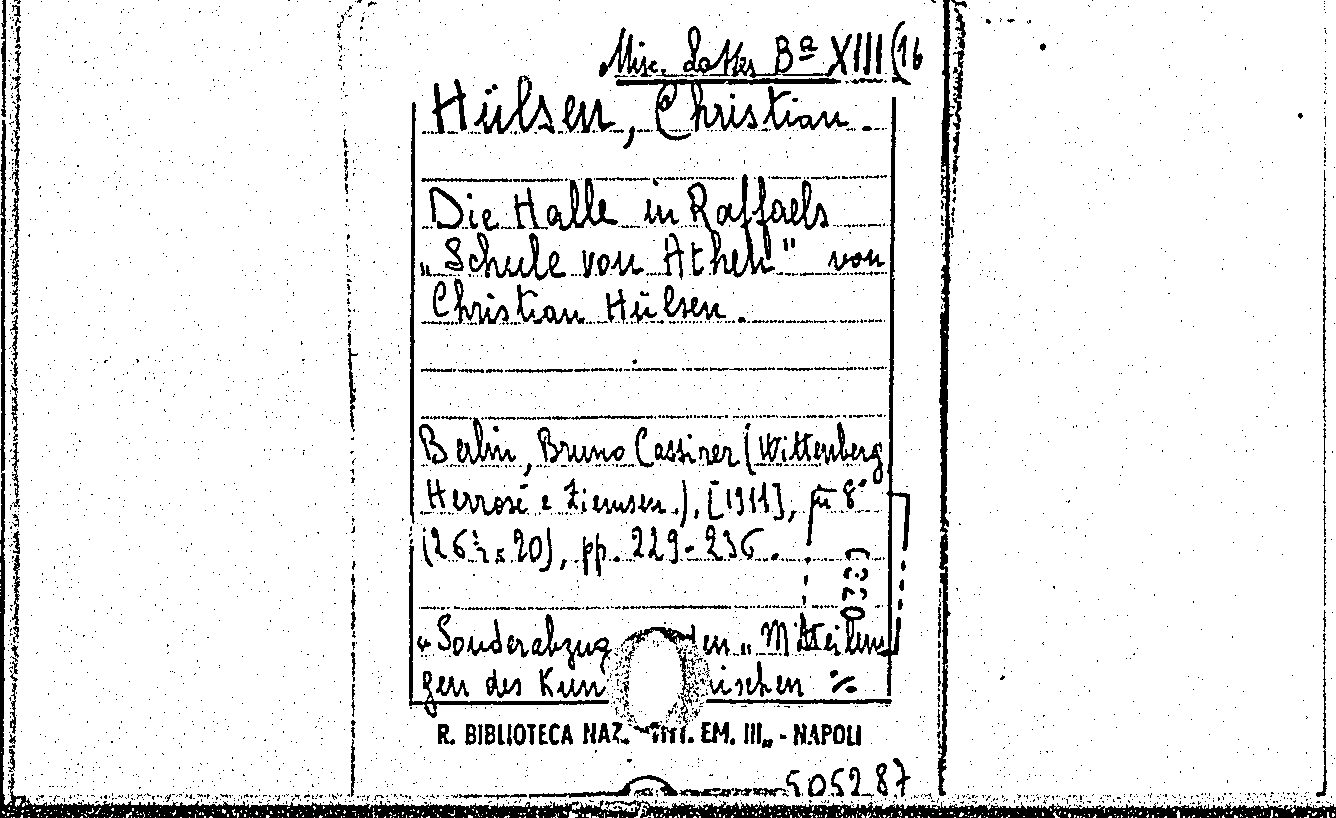 Misc. Lattes Bª XIII (16
Hülsen, Christian.
Die Halle in Raffaels
„Schule von Athen" von
Christian Hülsen.
Berlin, Bruno Cassirer (Wittenberg
Herrosé e Ziemsen.), [1911], in 8°
(26½ x 20), pp. 229-236.
(0733)
«Sonderabzug den „Mitteilun
gen des Kun ischen ./.
R. BIBLIOTECA NAZ. EM. III„ - NAPOLI
505287